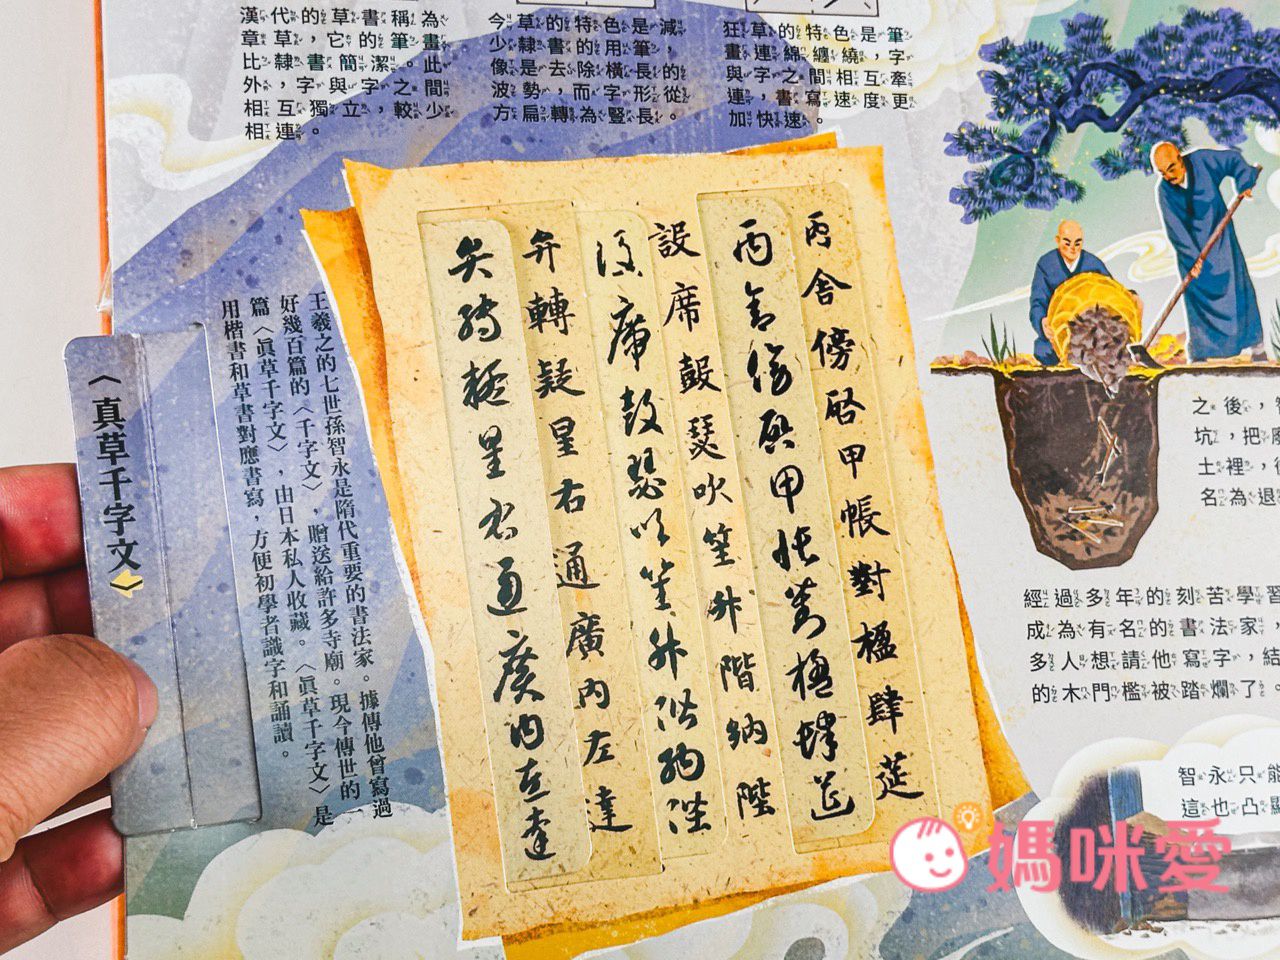 漢代的草書稱為
章草，它的筆畫
比隸書簡潔。此
外，字與字之間
相互獨立，較少
相連。
今草的特色是減
少隸書的用筆，
像是去除橫長的
波勢，而字形從
方扁轉為豎長。
狂草的特色是筆
畫連綿纏繞，字
與字之間相互牽
連，書寫速度更
加快速。
〈真草千字文〉
王羲之的七世孫智永是隋代重要的書法家。據傳他曾寫過
好幾百篇的〈千字文〉，贈送給許多寺廟。現今傳世的一
篇〈真草千字文〉，由日本私人收藏。〈真草千字文〉是
用楷書和草書對應書寫，方便初學者識字和誦讀。
丙舍傍啓甲帳對楹肆莚
丙舍傍啓甲帳對楹肆莚
設席鼓瑟吹笙升階納陛
設席鼓瑟吹笙升階納陛
弁轉疑星右通廣內左達
弁轉疑星右通廣內左達
之後，
坑，把
土裡，
名為退
經過多年的刻苦學習
成為有名的書法家
多人想請他寫字，結
的木門檻被踏爛了
智永只能
這也凸顯
媽咪愛